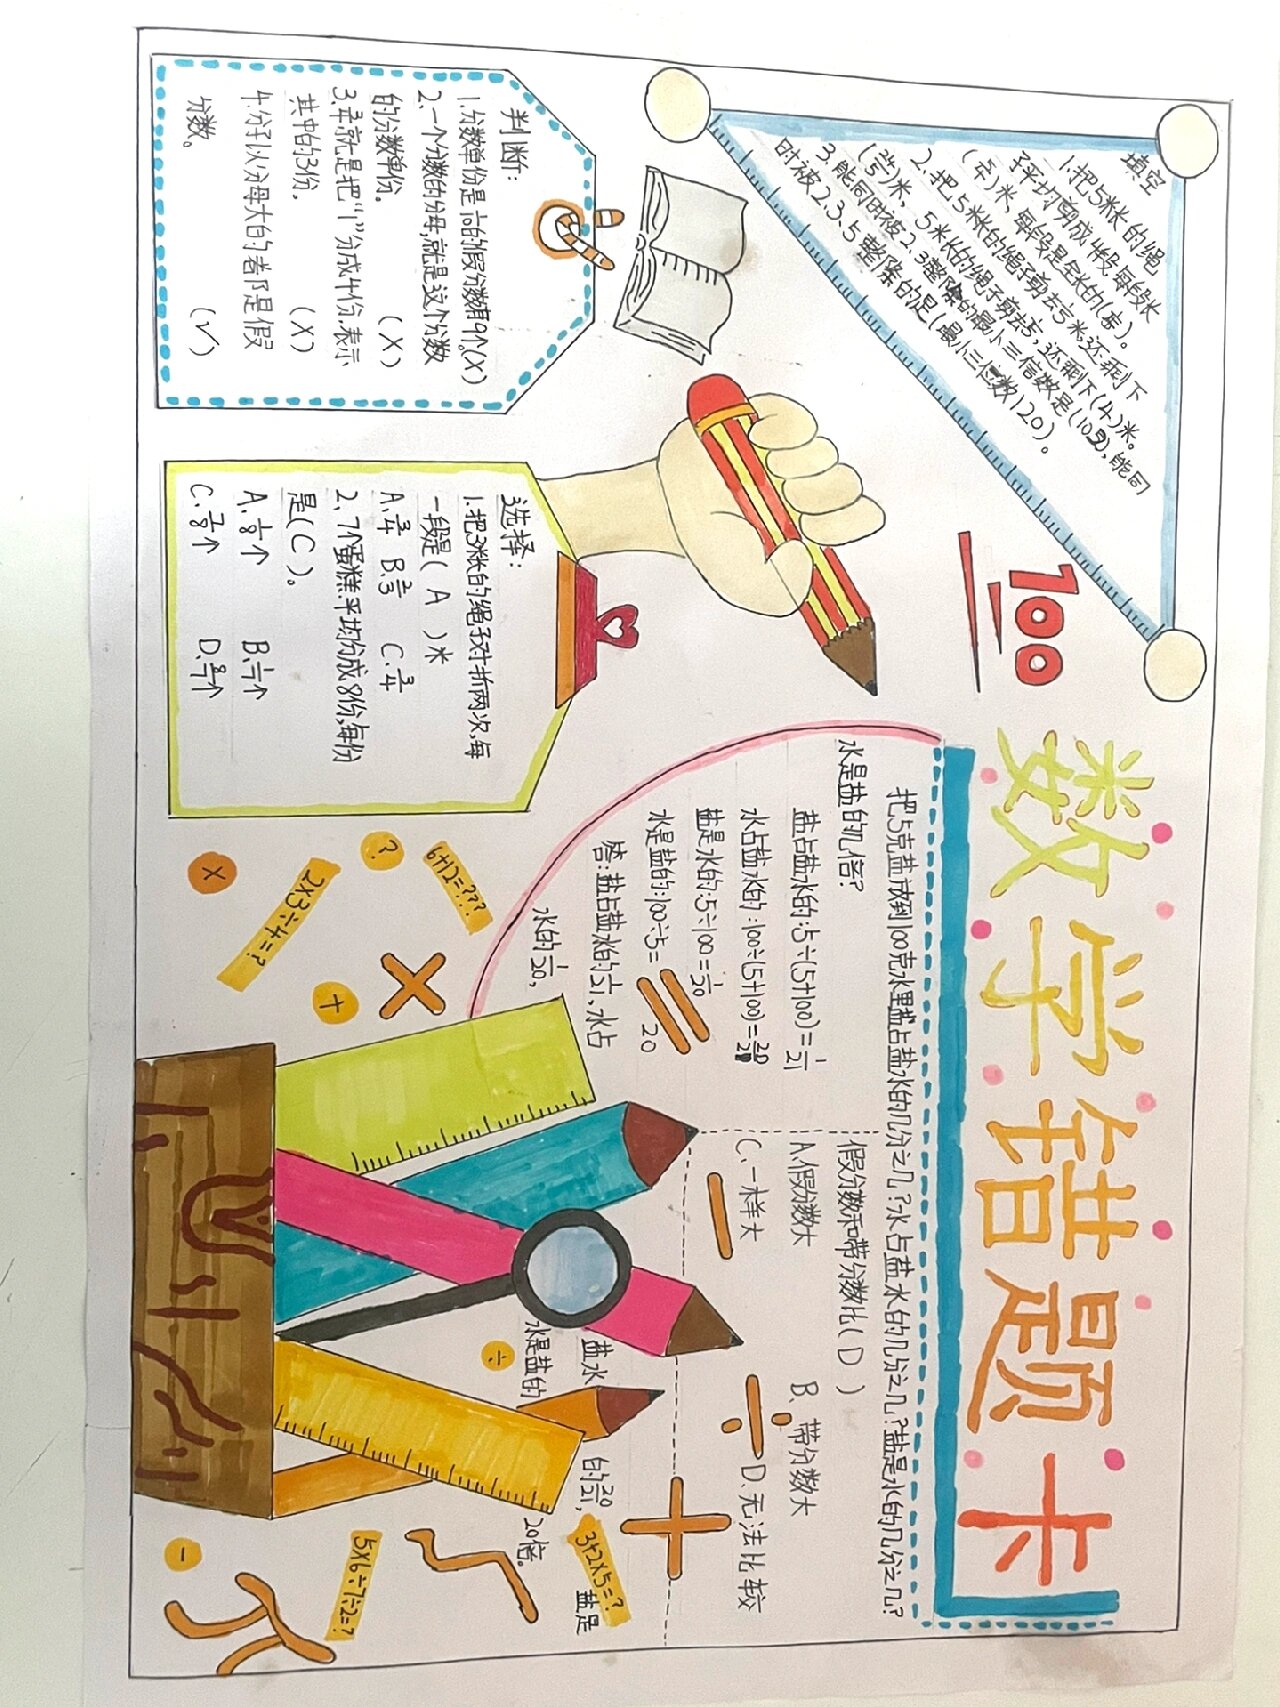 数学错题卡
100
填空
1.把5米长的绳
子平均剪成4段,每段长
(5/4)米,每段是全长的(1/4)。
2.把5米的绳子剪去1/5米,还剩下
(4 4/5)米、5米长的绳子剪去1/5,还剩下(4)米。
3.能同时被2.3整除的最小三位数是(102),能同
时被2.3.5整除的是(最小三位数120)。
判断:
1.分数单份是1/10的假分数有9个。(X)
2.一个分数的分母,就是这个分数
的分数单份。 (X)
3.3/4就是把“1”分成4份,表示
其中的3份. (X)
4.分子比分母大的者都是假
分数。 (√)
选择:
1.把3米长的绳子对折两次,每
一段是( A )米
A.3/4 B.2/3 C.3/4
2、7个蛋糕平均分成8份,每份
是(C)。
A.1/8个 B.1/7个
C.7/8个 D.8/7个
把5克盐放到100克水里盐占盐水的几分之几?水占盐水的几分之几?盐是水的几分之几?
水是盐的几倍?
盐占盐水的:5÷(5+100)=1/21
水占盐水的:100÷(5+100)=20/21
盐是水的:5÷100=1/20
水是盐的:100÷5=20
答:盐占盐水的1/21、水占
盐水的20/21,盐是
水的1/20,水是盐的20倍。
假分数和带分数比( D )
A.假分数大 B、带分数大
C.一样大 D.无法比较
6+12=???
?
2×3÷4=?
×
+
÷
3+2×5=?
5×6÷7÷2=?
-